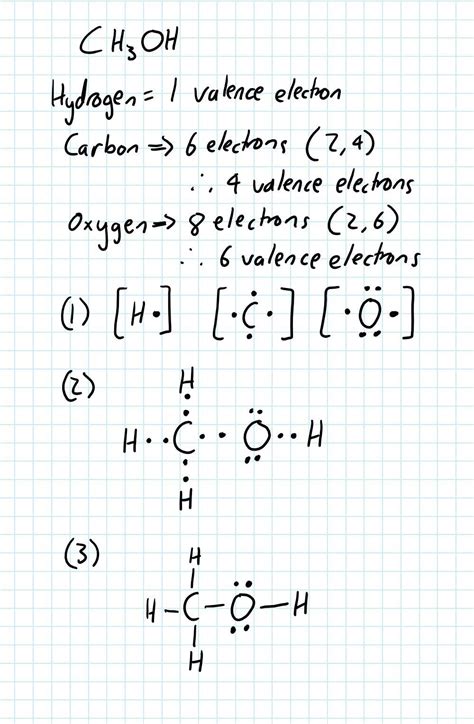 CH₃OH
Hydrogen = 1 valence electron
Carbon => 6 electrons (2,4)
∴ 4 valence electrons
Oxygen => 8 electrons (2,6)
∴ 6 valence electrons
(1) [H•] [•C•] [•O•]
(2)
H
H••C•• O••H
H
(3)
H
H–C–O–H
H